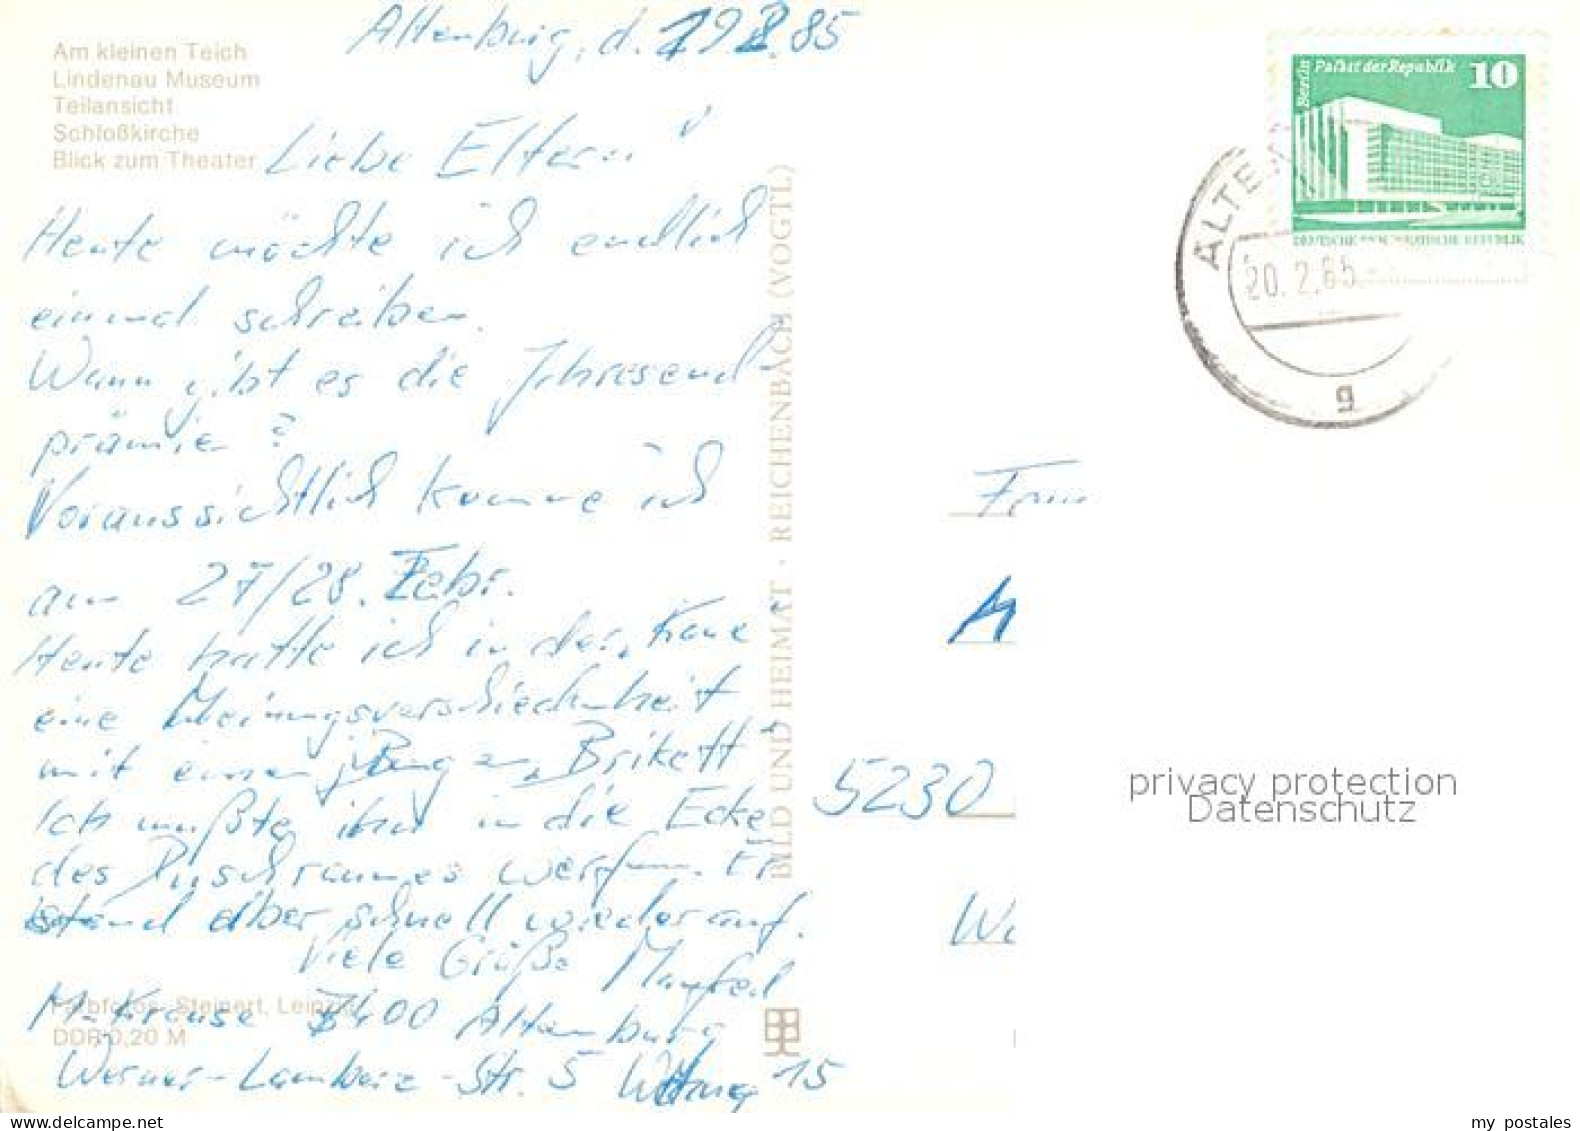 Am kleinen Teich
Lindenau Museum
Teilansicht
Schloßkirche
Blick zum Theater
Altenburg, d. 19.2.85
Liebe Eltern!
Heute möchte ich endlich
einmal schreiben.
Wann gibt es die Jahresend-
prämie?
Voraussichtlich komme ich
am 27/28. Febr.
Heute hatte ich in der
eine Meinungsverschiedenheit
mit einem jungen "Brikett"
Ich mußte ihn in die Ecke
des Duschraumes werfen. Er
stand aber schnell wieder auf.
Viele Grüße Manfred
M. Krause 7400 Altenburg
Werner-Lamberz-Str. 5 15
Farbfotos: Steinert, Leipzig
DDR 0,20 M
BILD UND HEIMAT · REICHENBACH (VOGTL)
Berlin Palast der Republik 10
DEUTSCHE DEMOKRATISCHE REPUBLIK
ALTEN
20.2.85
g
Frau
5230
privacy protection
Datenschutz
my postales